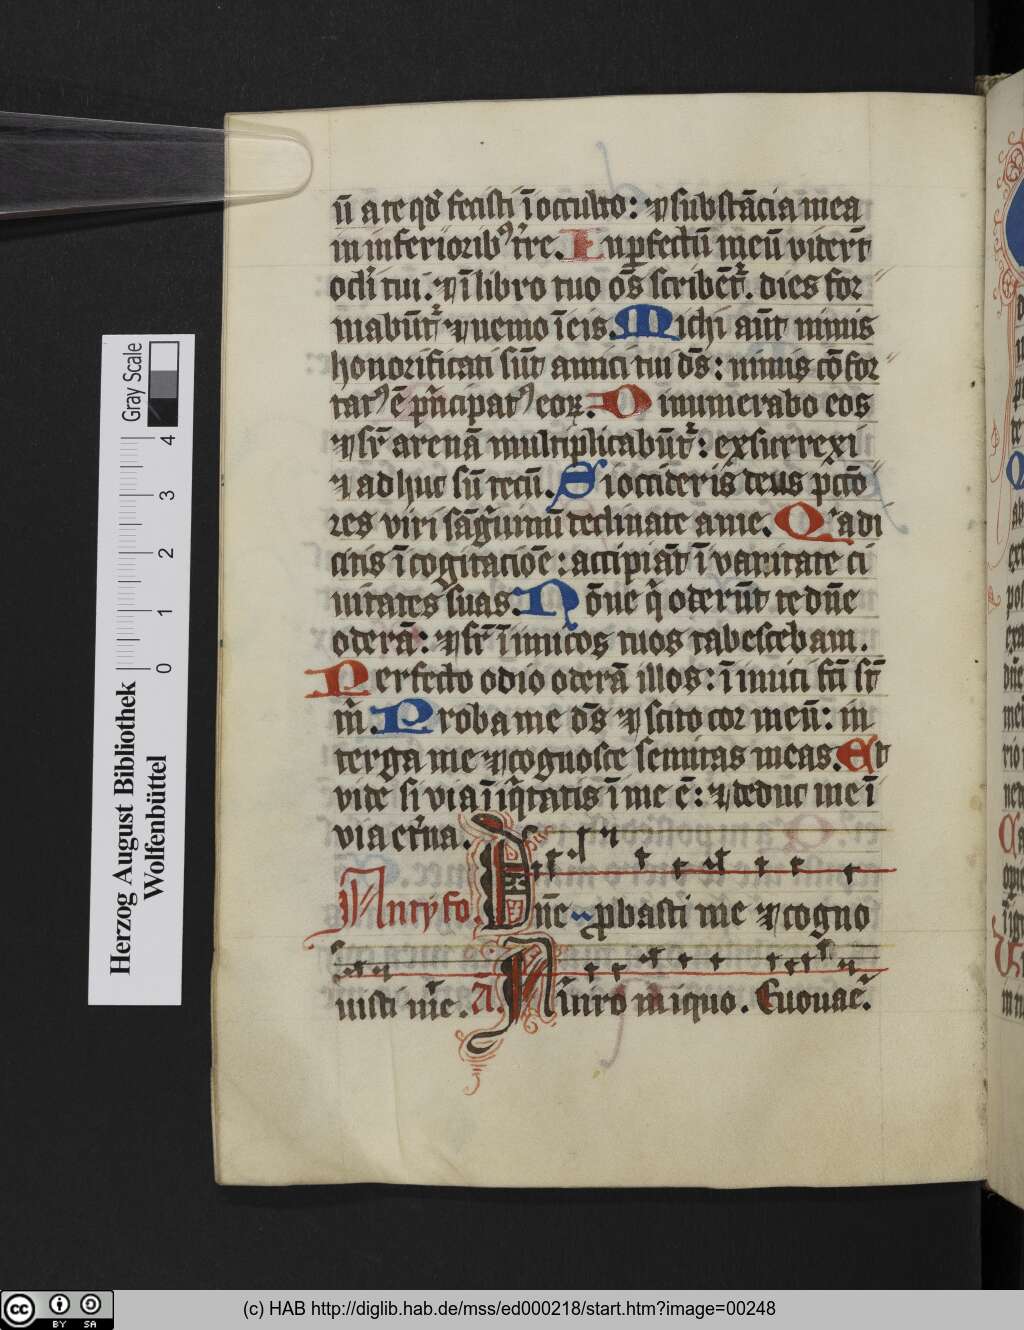 ū a te qď fecisti ī occulto: ⁊ substācia mea
in inferiorib⁹ t're. Inꝑfectū meū viderūt
ocl'i tui. ⁊ ī libro tuo oēs scribēt᷑. dies for
mabūt᷑ ⁊ nemo ī eis. Michi aūt nimis
honorificati sūt amici tui ds̄: nimis cōfor
tat⁹ ē pncipat⁹ eoꝝ. Dinumerabo eos
⁊ sr̄ arenā multiplicabūt᷑: exsurrexi
⁊ adhuc sū tecū. Si occideris deus pctō
res viri sāguinū declinate a me. Quia di
citis ī cogitacioē: accipiāt ī vanitate ci
uitates suas. Nōne q̇ oderūt te dn̄e
oderā: ⁊ sr̄ īimicos tuos tabescebam.
Perfecto odio oderā illos: īimici fcī st̄
m̄. Proba me ds̄ ⁊ scito cor meū: in
terga me ⁊ cognosce semitas meas. Et
vide si via īiq̇tatis ī me ē: ⁊ deduc me ī
via et'na.
Antyfō. Dn̄e ꝓbasti me ⁊ cogno
uisti me. A. A uiro iniquo. Euouae.
Gray Scale
4
3
2
1
0
Herzog August Bibliothek
Wolfenbüttel
cc BY SA
(c) HAB http://diglib.hab.de/mss/ed000218/start.htm?image=00248